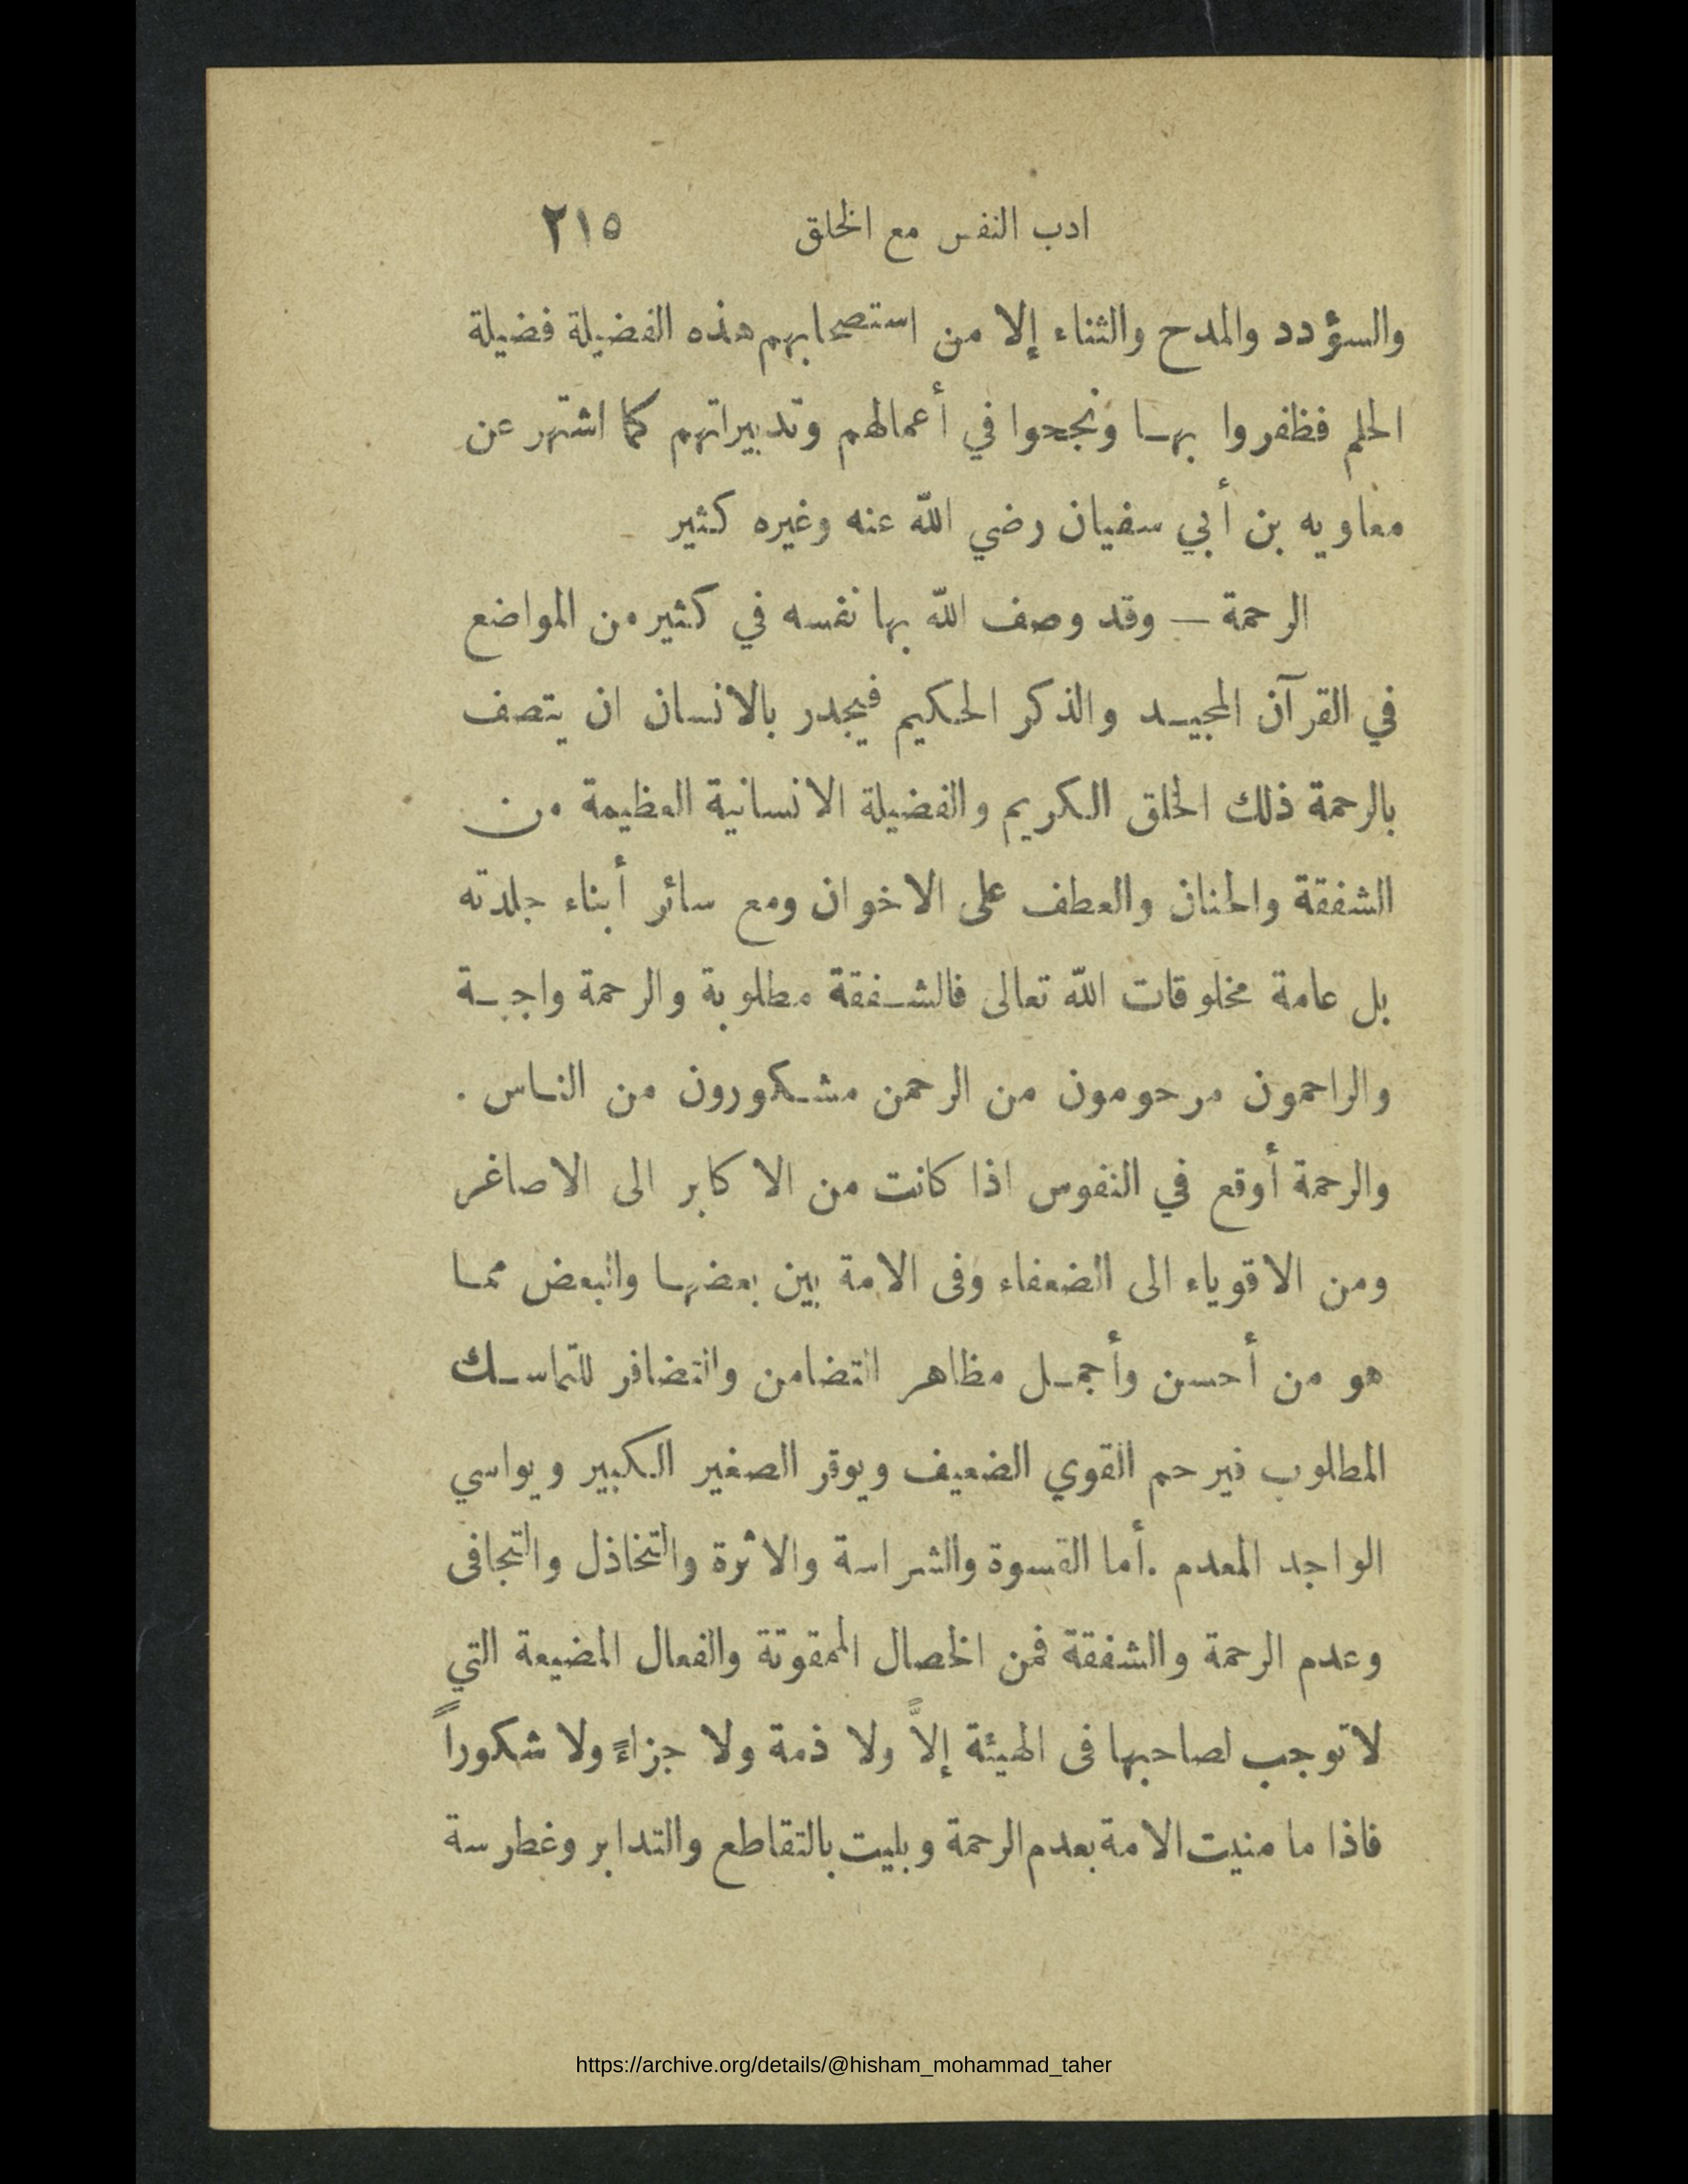 ادب النفس مع الخلق ٢١٥
والسؤدد والمدح والثناء إلا من استصحابهم هذه الفضيلة فضيلة
الحلم فظفروا بها ونجحوا في أعمالهم وتدبيراتهم كما اشتهر عن
معاويه بن أبي سفيان رضي الله عنه وغيره كثير
الرحمة — وقد وصف الله بها نفسه في كثير من المواضع
في القرآن المجيد والذكر الحكيم فيجدر بالانسان ان يتصف
بالرحمة ذلك الخلق الكريم والفضيلة الانسانية العظيمة من
الشفقة والحنان والعطف على الاخوان ومع سائر أبناء جلدته
بل عامة مخلوقات الله تعالى فالشفقة مطلوبة والرحمة واجبة
والراحمون مرحومون من الرحمن مشكورون من الناس .
والرحمة أوقع في النفوس اذا كانت من الاكابر الى الاصاغر
ومن الاقوياء الى الضعفاء وفى الامة بين بعضها والبعض مما
هو من أحسن وأجمل مظاهر التضامن والتضافر للتماسك
المطلوب فيرحم القوي الضعيف ويوقر الصغير الكبير ويواسي
الواجد المعدم . أما القسوة والشراسة والاثرة والتخاذل والتجافى
وعدم الرحمة والشفقة فمن الخصال الممقوتة والفعال المضيعة التي
لا توجب لصاحبها فى الهيئة إلاًّ ولا ذمة ولا جزاءً ولا شكوراً
فاذا ما منيت الامة بعدم الرحمة وبليت بالتقاطع والتدابر وغطرسة
https://archive.org/details/@hisham_mohammad_taher